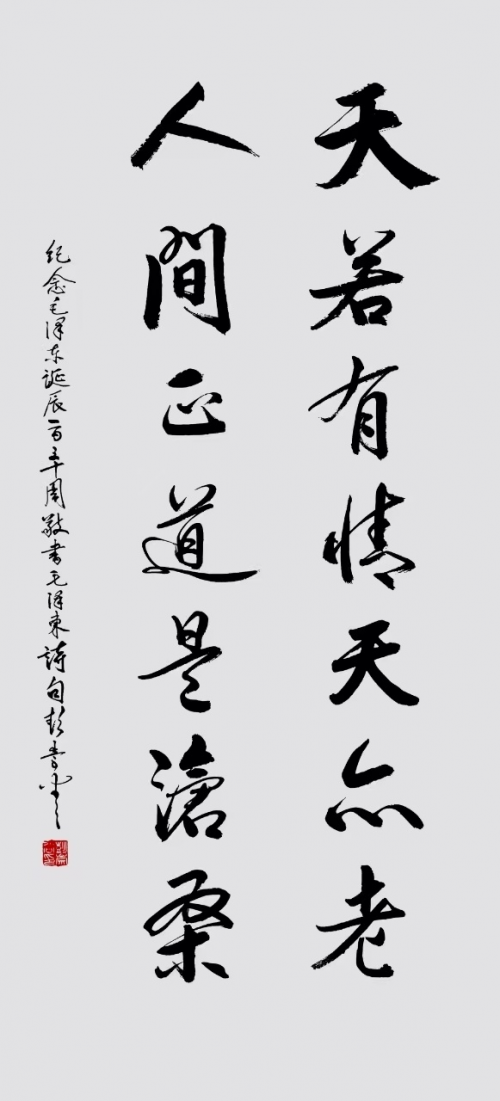 天若有情天亦老
人間正道是滄桑
纪念毛泽东诞辰一百二十周敬书毛泽東詩句